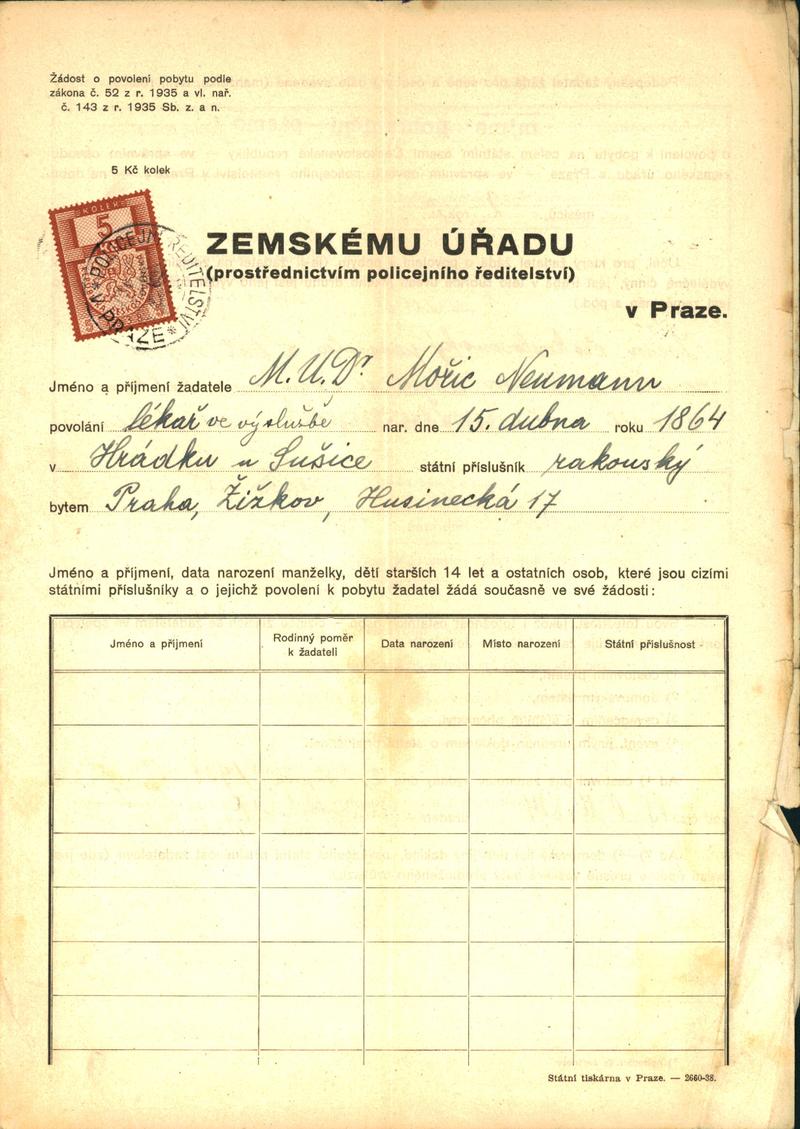 Žádost o povolení pobytu podle
zákona č. 52 z r. 1935 a vl. nař.
č. 143 z r. 1935 Sb. z. a n.
5 Kč kolek
KOLEK
5
POLICEJNÍ ŘEDITELSTVÍ * V PRAZE *
ZEMSKÉMU ÚŘADU
(prostřednictvím policejního ředitelství)
v Praze.
Jméno a příjmení žadatele M.U.Dr Mořic Neumann
povolání lékař ve výslužbě nar. dne 15. dubna roku 1864
v Hrádku u Sušice státní příslušník rakouský
bytem Praha, Žižkov, Husinecká 17
Jméno a příjmení, data narození manželky, dětí starších 14 let a ostatních osob, které jsou cizími
státními příslušníky a o jejichž povolení k pobytu žadatel žádá současně ve své žádosti:
Jméno a příjmení Rodinný poměr k žadateli Data narození Místo narození Státní příslušnost
Státní tiskárna v Praze. — 2660-38.